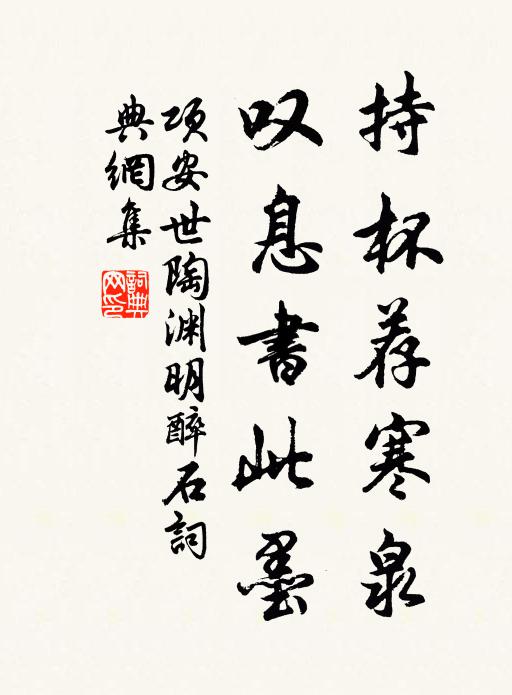 持杯荐寒泉
叹息書此墨
项安世陶渊明醉石詞
典網集
詞典
网印